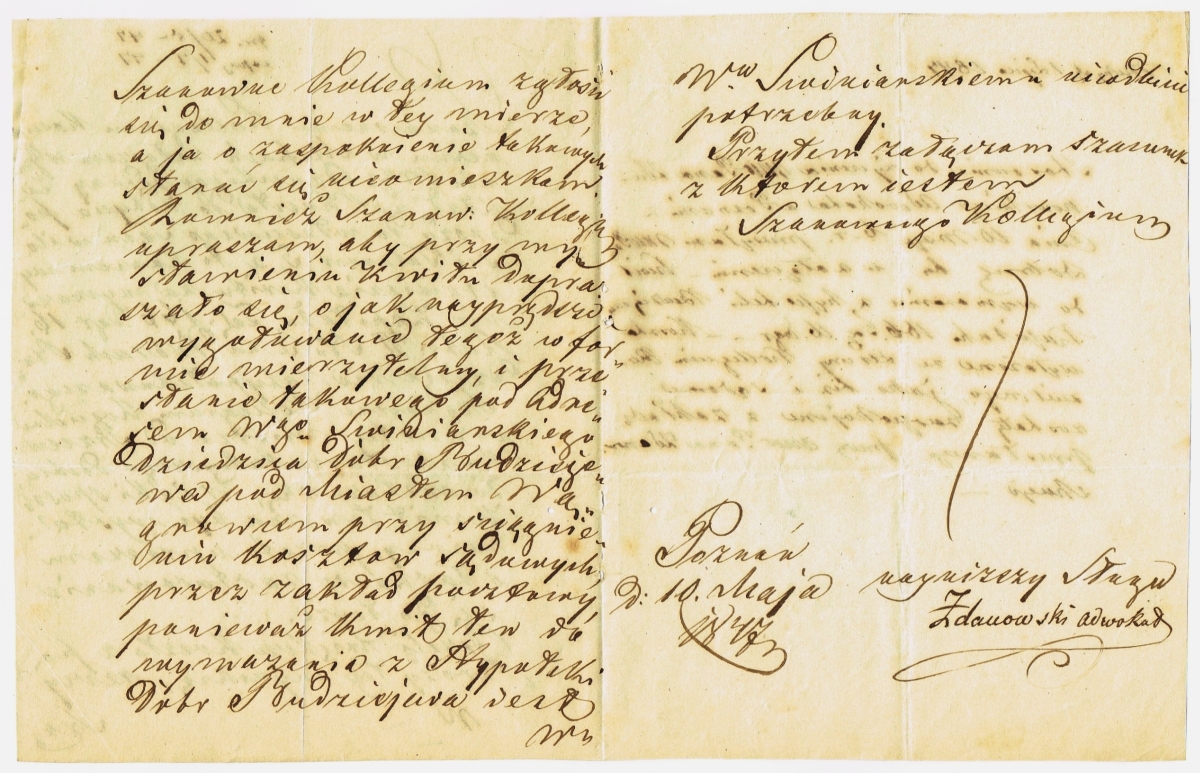 Szanowne Kollegium zgłosi
się do mnie w tey mierze,
a ja o zaspokoienie takowych
starać się nieomieszkam
Rownież Szanow: Kollegium
upraszam, aby przy wy-
stawieniu Kwitu dopra-
szało się, o jak nayprędsze
wygotowanie tegoż w for-
mie wierzytelny, i prze-
słanie takowego pod Adre-
sem Wgo Swiniarskiego
dziedzica Dobr Budzieje-
wa pod Miastem Wą-
growcem przy sciągnie-
niu Kosztow sądowych
przez zakład pocztowy,
ponieważ Kwit ten do
wymazania z Hypoteki
Dobr Budziejewa iest
Ww
Ww Swiniarskiemu nieodbicie
potrzebny.
Przytem załączam szacunek
z ktorem iestem
Szanownego Kollegium
Poznań
d: 10. Maja
1847
nayniższy Sługa
Zdanowski adwokat